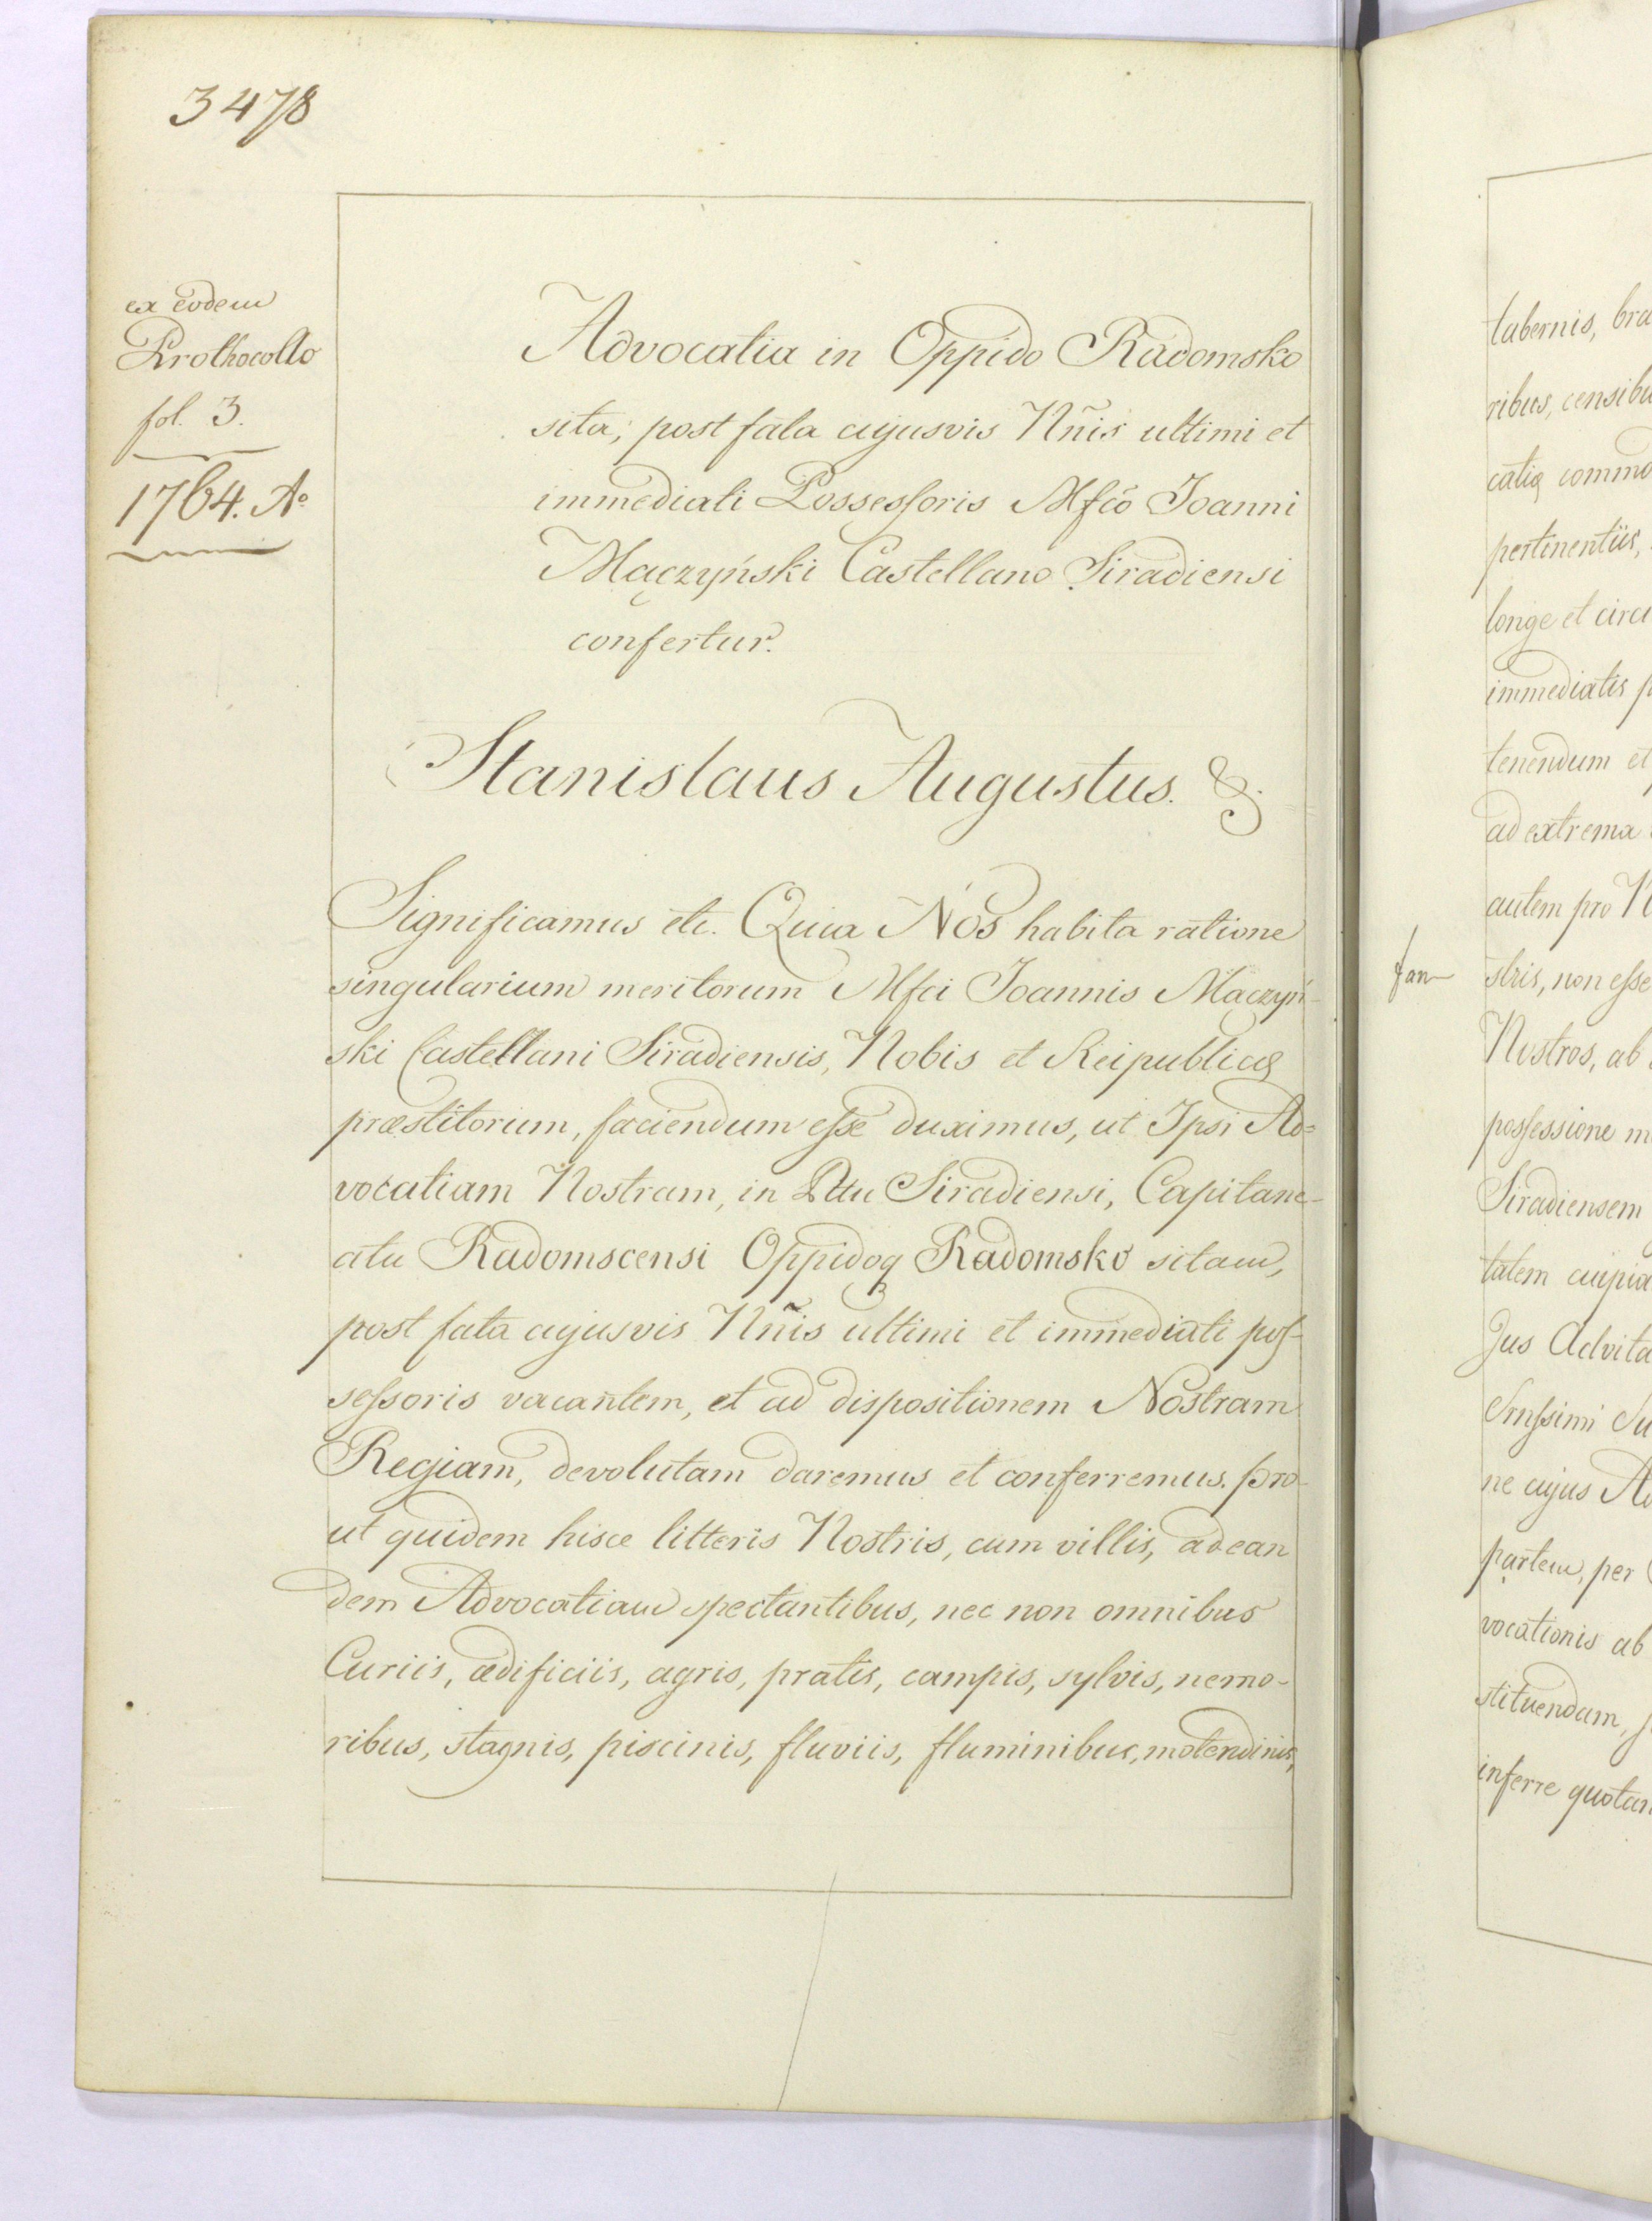 3478
ex eodem
Prothocollo
fol. 3.
1764. Aº
Advocatia in Oppido Radomsko
sita, post fata cujusvis Nñis ultimi et
immediati Possessoris Mfcõ Joanni
Mączyński Castellano Siradiensi
confertur.
Stanislaus Augustus. &.
Significamus etc. Quia Nos habita ratione
singularium meritorum Mfci Joannis Mączyń-
ski Castellani Siradiensis, Nobis et Reipublicæ
præstitorum, faciendum esse duximus, ut Ipsi Ad=
vocatiam Nostram, in Pttu Siradiensi, Capitane-
atu Radomscensi Oppidoq Radomsko sitam,
post fata cujusvis Nñis ultimi et immediati pos-
sessoris vacantem, et ad dispositionem Nostram
Regiam, devolutam daremus et conferremus. pro-
ut quidem hisce litteris Nostris, cum villis, ad ean
dem Advocatiam spectantibus, nec non omnibus
Curiis, ædificiis, agris, pratis, campis, sylvis, nemo-
ribus, stagnis, piscinis, fluviis, fluminibus, molendinis,
tabernis, bra
ribus, censibu
catiq commo
pertinentiis,
longe et circu
immediatis p
tenendum et
ad extrema
autem pro N
fan
stris, non esse
Nostros, ab
possessione m
Siradiensem
tatem cuipia
Jus Advita
Srnssimi Su
ne cujus Ad
partem, per
vocationis ab
stituendam,
inferre quotan